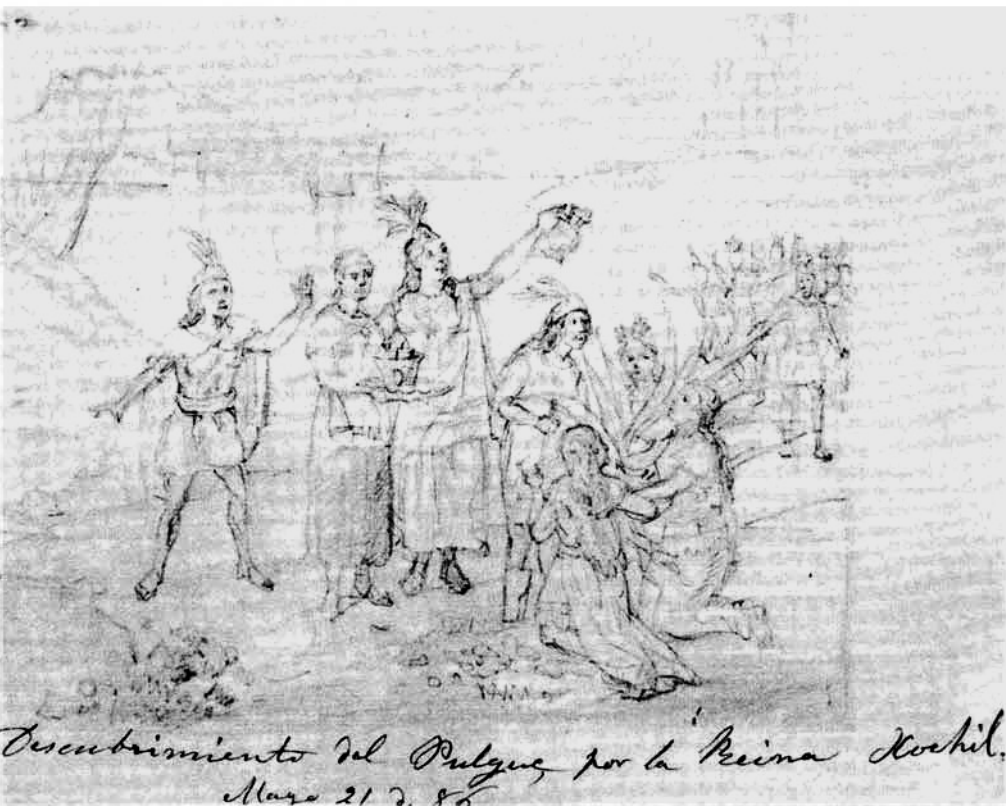 Descubrimiento del Pulque por la Reina Xochil.
Mayo 21 d. 86